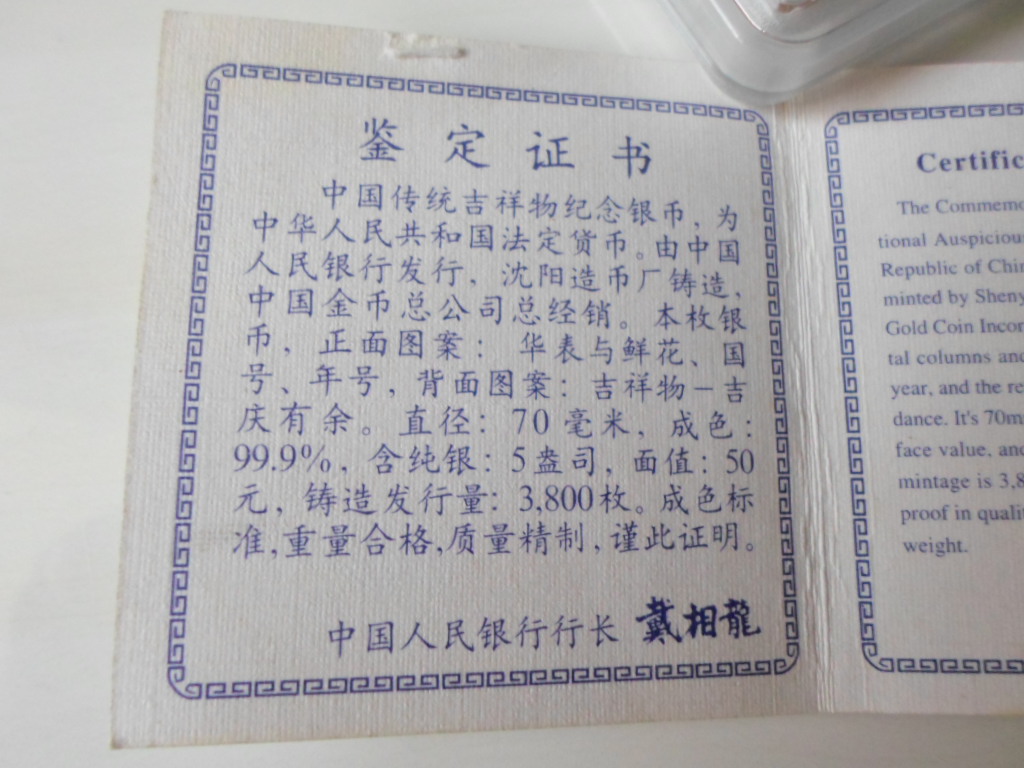 鉴定证书
中国传统吉祥物纪念银币，为
中华人民共和国法定货币。由中国
人民银行发行，沈阳造币厂铸造，
中国金币总公司总经销。本枚银
币，正面图案：华表与鲜花、国
号、年号，背面图案：吉祥物－吉
庆有余。直径：70毫米，成色：
99.9%，含纯银：5盎司，面值：50
元，铸造发行量：3,800枚。成色标
准，重量合格，质量精制，谨此证明。
中国人民银行行长 戴相龍
Certific
The Commemo
tional Auspiciou
Republic of Chin
minted by Sheny
Gold Coin Incor
tal columns and
year, and the re
dance. It's 70m
face value, and
mintage is 3,8
proof in qualit
weight.